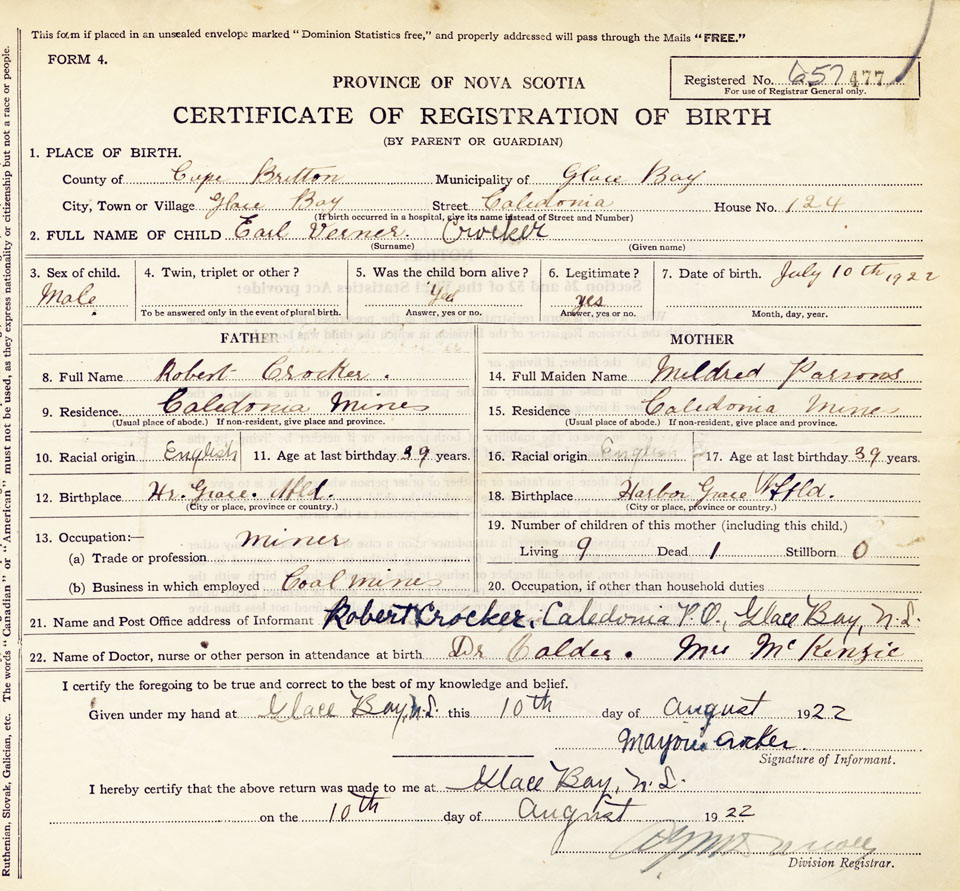 This form if placed in an unsealed envelope marked "Dominion Statistics free," and properly addressed will pass through the Mails "FREE."
FORM 4.
Registered No. 657477
For use of Registrar General only.
PROVINCE OF NOVA SCOTIA
CERTIFICATE OF REGISTRATION OF BIRTH
(BY PARENT OR GUARDIAN)
1. PLACE OF BIRTH.
County of Cape Britton Municipality of Glace Bay
City, Town or Village Glace Bay Street Caledonia House No. 124
(If birth occurred in a hospital, give its name instead of Street and Number)
2. FULL NAME OF CHILD Earl Verner. Crocker
(Surname) (Given name)
3. Sex of child. 4. Twin, triplet or other? 5. Was the child born alive? 6. Legitimate? 7. Date of birth. July 10th 1922
Male Yes yes
To be answered only in the event of plural birth. Answer, yes or no. Answer, yes or no. Month, day, year.
FATHER MOTHER
8. Full Name Robert Crocker. 14. Full Maiden Name Mildred Parsons
9. Residence. Caledonia Mines 15. Residence Caledonia Mines
(Usual place of abode.) If non-resident, give place and province. (Usual place of abode.) If non-resident, give place and province.
10. Racial origin English 11. Age at last birthday 39 years. 16. Racial origin English 17. Age at last birthday 39 years.
12. Birthplace Hr. Grace. Nfld. 18. Birthplace Harbor Grace Nfld.
(City or place, province or country.) (City or place, province or country.)
13. Occupation:— 19. Number of children of this mother (including this child.)
(a) Trade or profession miner Living 9 Dead 1 Stillborn 0
(b) Business in which employed Coal mines 20. Occupation, if other than household duties
21. Name and Post Office address of Informant Robert Crocker, Caledonia P.O., Glace Bay, N.S.
22. Name of Doctor, nurse or other person in attendance at birth Dr Calder. Mrs McKenzie
I certify the foregoing to be true and correct to the best of my knowledge and belief.
Given under my hand at Glace Bay, N.S. this 10th day of August 1922
Marjorie Crocker.
Signature of Informant.
I hereby certify that the above return was made to me at Glace Bay, N.S.
on the 10th day of August 1922
Division Registrar.
Ruthenian, Slovak, Galician, etc. The words "Canadian" or "American" must not be used, as they express nationality or citizenship but not a race or people.